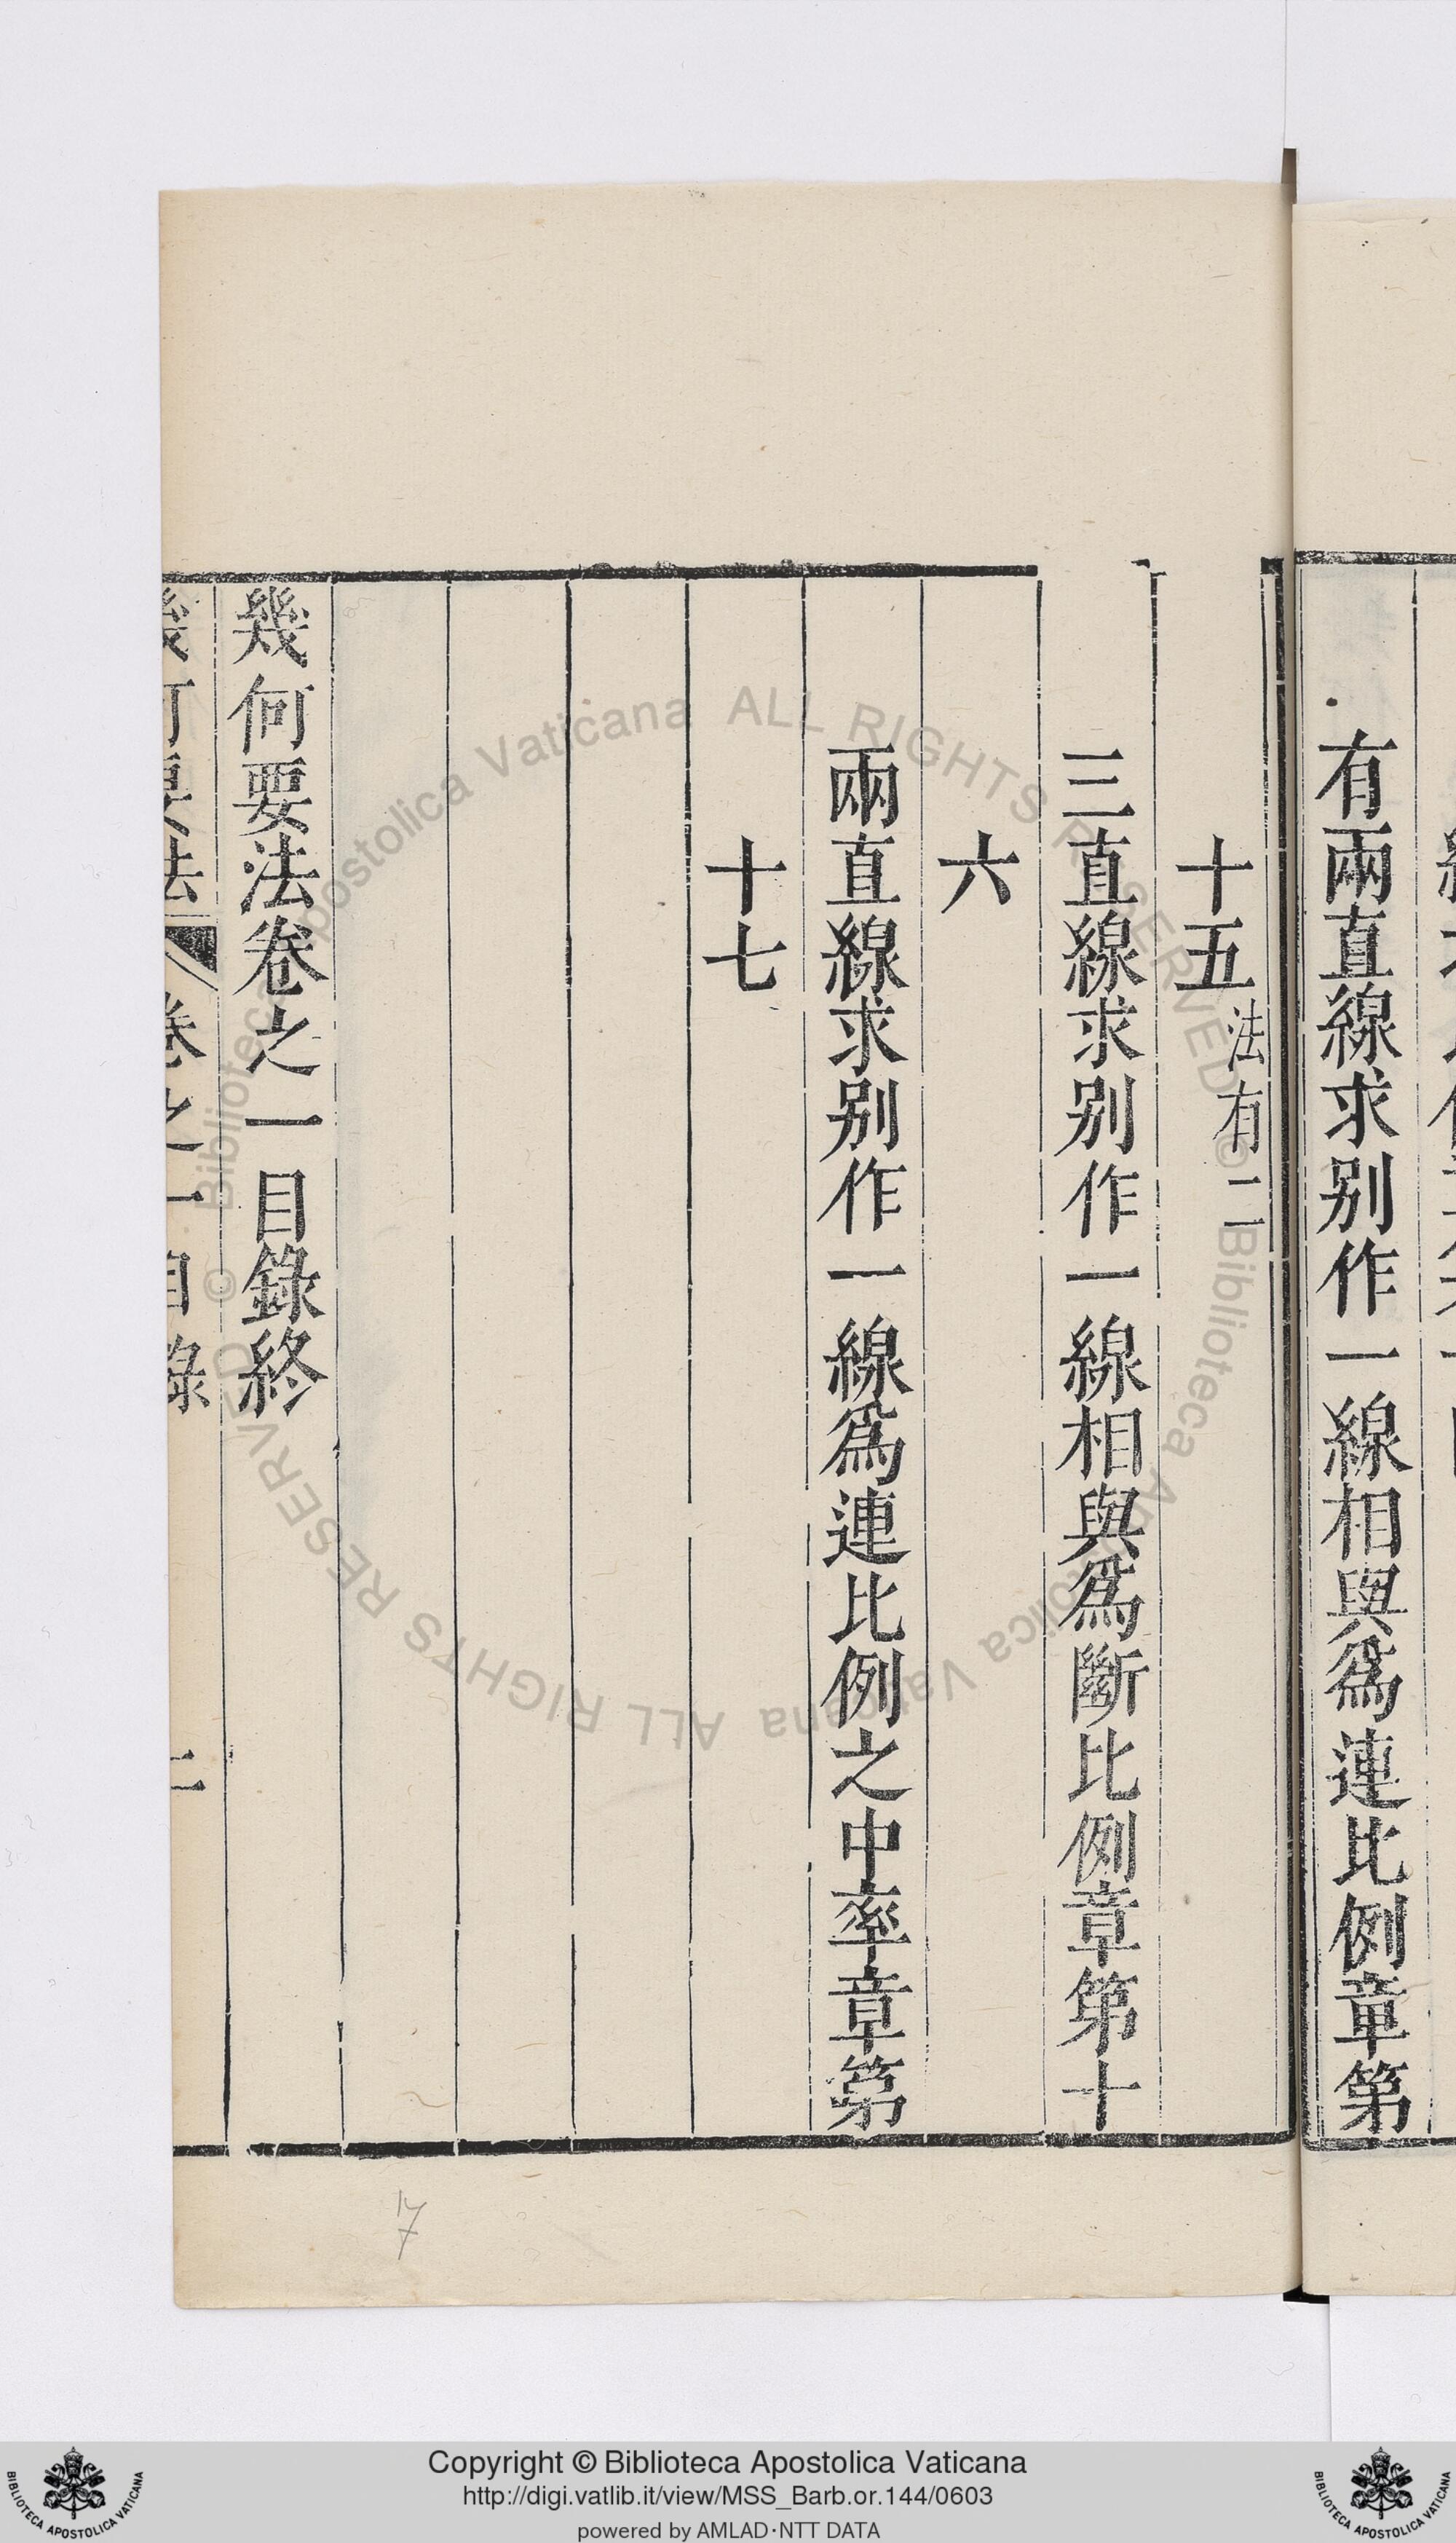 有兩直線求别作一線相與爲連比例章第
十五法有二
三直線求别作一線相與爲斷比例章第十
六
兩直線求别作一線爲連比例之中率章第
十七
幾何要法卷之一目錄終
幾何要法 卷之一目錄 二
17
Copyright © Biblioteca Apostolica Vaticana
http://digi.vatlib.it/view/MSS_Barb.or.144/0603
powered by AMLAD·NTT DATA
BIBLIOTECA APOSTOLICA VATICANA
BIBLIOTECA APOSTOLICA VATICANA
© Biblioteca Apostolica Vaticana ALL RIGHTS RESERVED
© Biblioteca Apostolica Vaticana ALL RIGHTS RESERVED